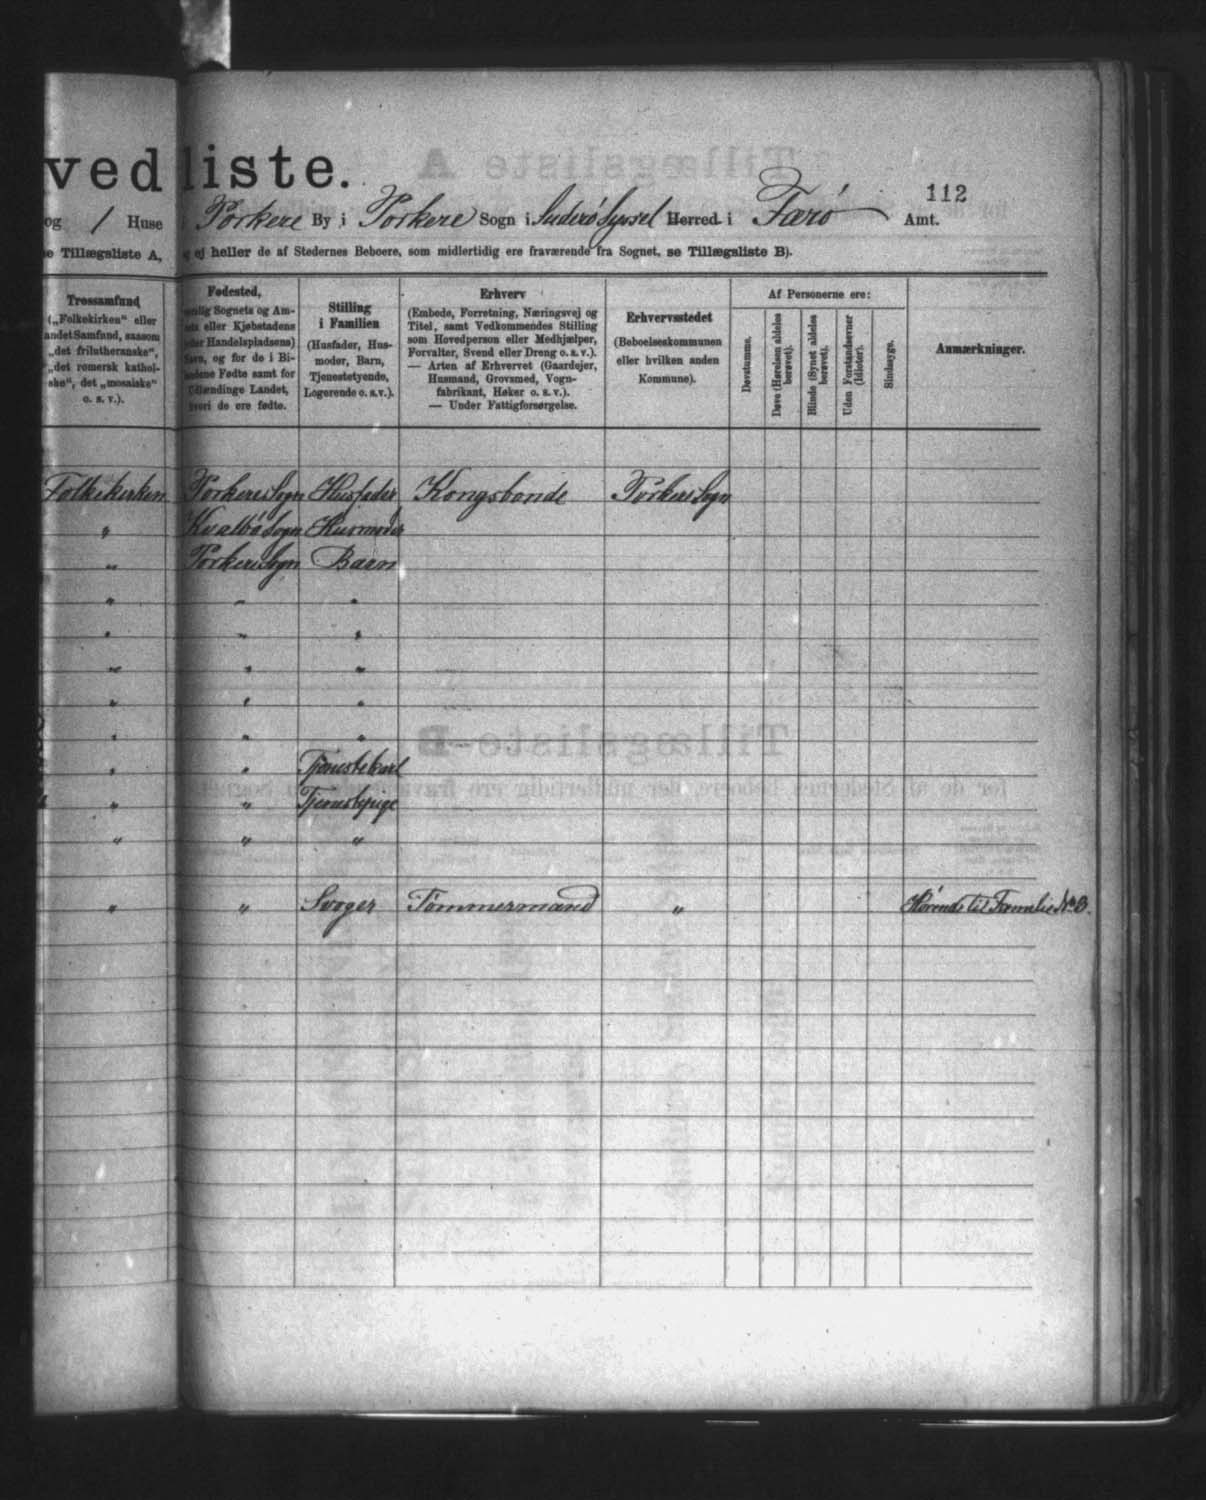 vedliste.
112
og 1 Huse i Porkere By i Porkere Sogn i Suderø Syssel Herred i Færø Amt.
e Tillægsliste A, g ej heller de af Stedernes Beboere, som midlertidig ere fraværende fra Sognet, se Tillægsliste B).
Trossamfund
(„Folkekirken“ eller
andet Samfund, saasom
„det frilutheranske“,
„det romersk kathol-
ske“, det „mosaiske“
o. s. v.).
Fødested,
nlig Sognets og Am-
ets eller Kjøbstadens
der Handelspladsens)
avn, og for de i Bi-
andene Fødte samt for
Udlændinge Landet,
hvori de ere fødte.
Stilling
i Familien
(Husfader, Hus-
moder, Barn,
Tjenestetyende,
Logerende o. s. v.).
Erhverv
(Embede, Forretning, Næringsvej og
Titel, samt Vedkommendes Stilling
som Hovedperson eller Medhjælper,
Forvalter, Svend eller Dreng o. s. v.).
— Arten af Erhvervet (Gaardejer,
Husmand, Grovsmed, Vogn-
fabrikant, Høker o. s. v.).
— Under Fattigforsørgelse.
Erhvervsstedet
(Beboelseskommunen
eller hvilken anden
Kommune).
Af Personerne ere:
Døvstumme.
Døve (Hørelsen aldeles
berøvet).
Blinde (Synet aldeles
berøvet).
Uden Forstandsevner
(Idioter).
Sindssyge.
Anmærkninger.
Folkekirken Porkere Sogn Husfader Kongsbonde Porkere Sogn
" Kvalbø Sogn Husmoder
" Porkere Sogn Barn
" " "
" " "
" " "
" " "
" " "
" " Tjenestekarl
" " Tjenestepige
" " "
" " Svoger Tømmermand " Hørende til Familie No 3.
Tillægsliste A
Tillægsliste B
for de af Stedernes beboere, der midlertidig ere fraværende fra Sognet.